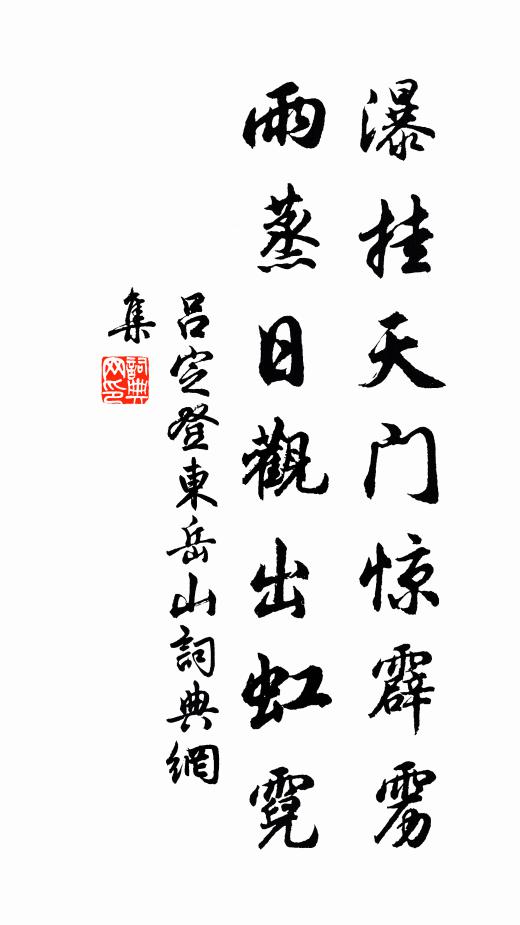 瀑挂天门惊霹雳
雨蒸日觀出虹霓
吕定登東岳山詞典網
集
詞典网印